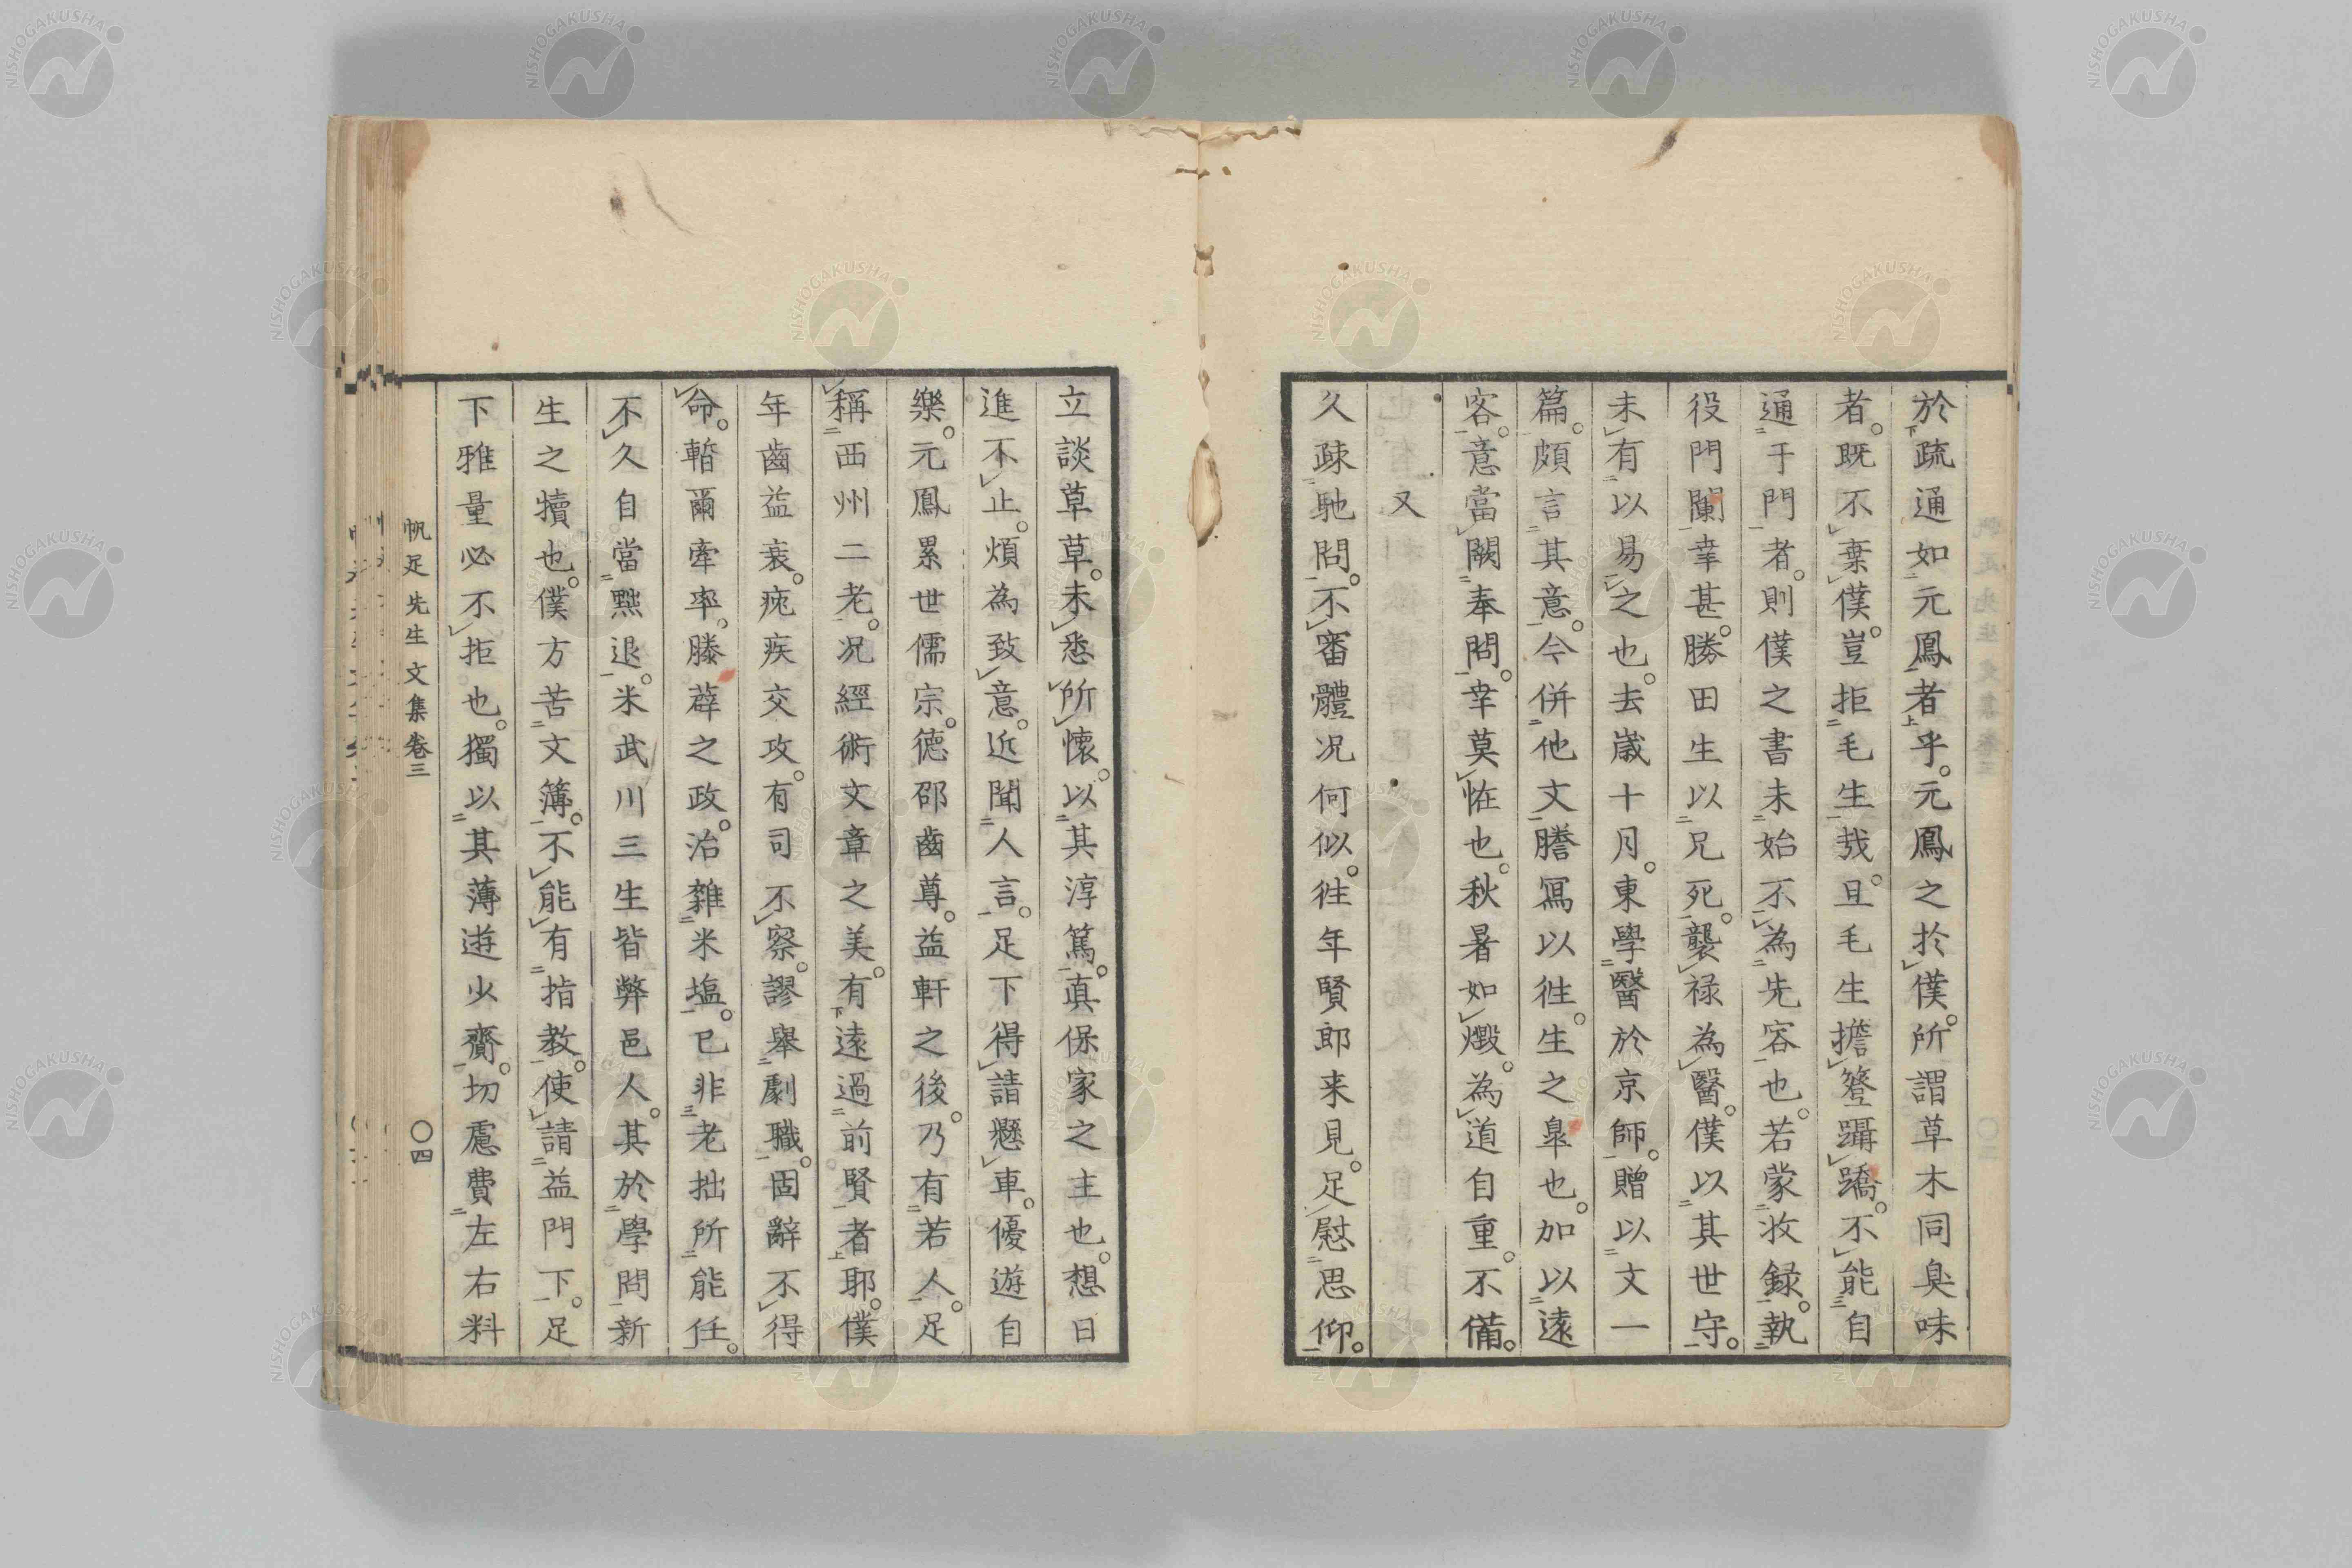 於疏通如元鳳者乎。元鳳之於僕。所謂草木同臭味
者。既不棄僕。豈拒毛生哉。且毛生擔簦躡蹻。不能自
通于門者。則僕之書未始不為先容也。若蒙收録。執
役門闌幸甚。勝田生以兄死。襲禄為醫。僕以其世守。
未有以易之也。去歳十月。東學醫於京師。贈以文一
篇。頗言其意。今併他文謄寫以徃。生之皐也。加以遠
客。意當闕奉問。幸莫恠也。秋暑如燬。為道自重。不備。
又
久疎馳問。不審體况何似。徃年賢郎来見。足慰思仰。
立談草草。未悉所懷。以其淳篤。真保家之主也。想日
進不止。煩為致意。近聞人言。足下得請懸車。優遊自
樂。元鳳累世儒宗。德邵齒尊。益軒之後。乃有若人。足
稱西州二老。况經術文章之美。有遠過前賢者耶。僕
年齒益衰。疣疾交攻。有司不察。謬舉劇職。固辭不得
命。暫爾牽率。滕薛之政。治雜米塩。已非老拙所能任。
不久自當黙退。米武川三生皆弊邑人。其於學問新
生之犢也。僕方苦文簿。不能有指教。使請益門下。足
下雅量必不拒也。獨以其薄遊少齎。切慮費左右料
帆足先生文集卷三
〇四
NISHOGAKUSHA